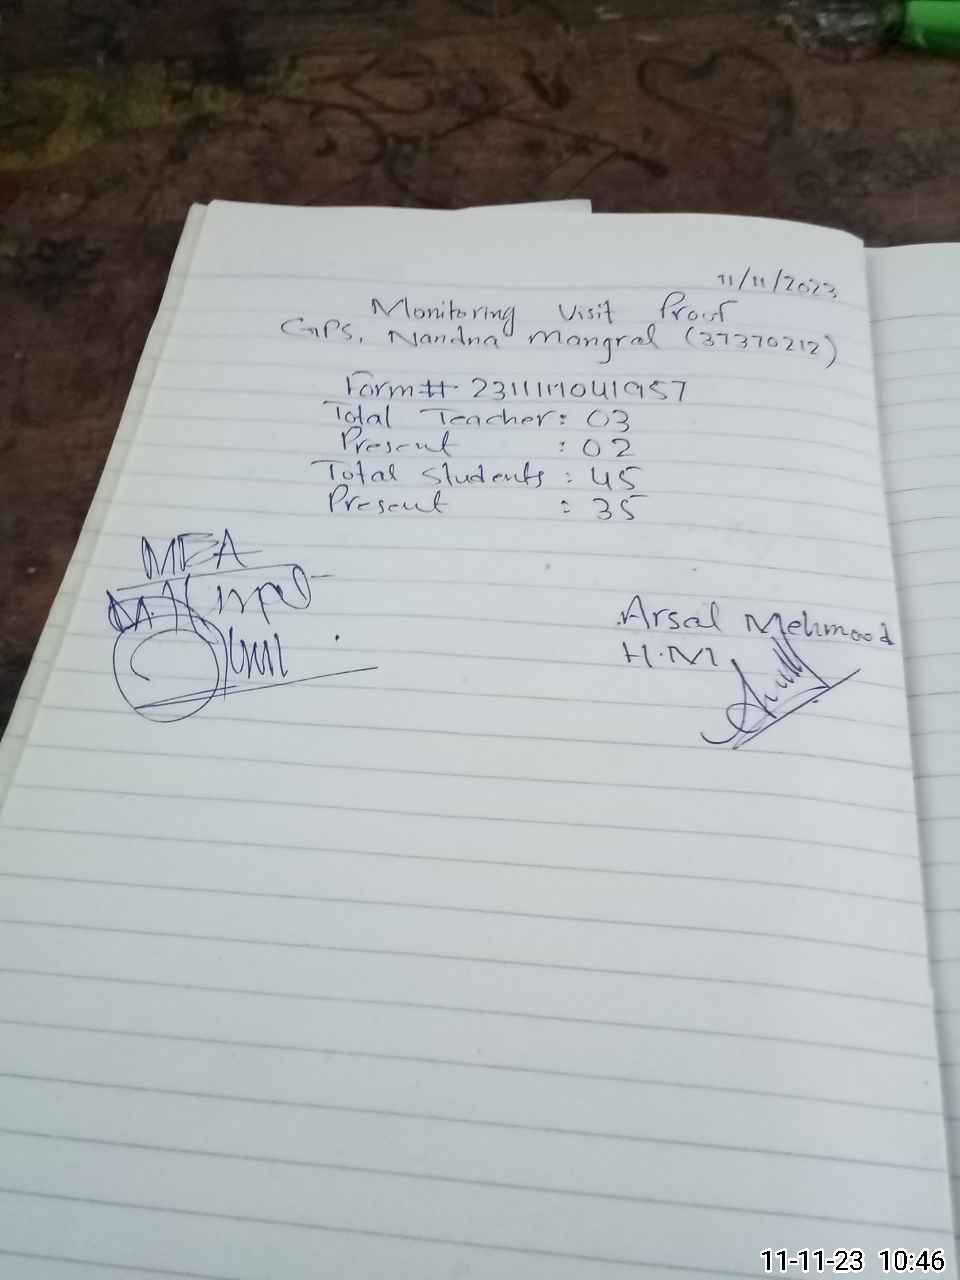 11/11/2023
Monitoring Visit Proof
GPS, Nandna Mangral (37370212)
Form# 231111041957
Total Teacher: 03
Present : 02
Total Students : 45
Present : 35
MEA
Arsal Mehmood
H.M
11-11-23 10:46